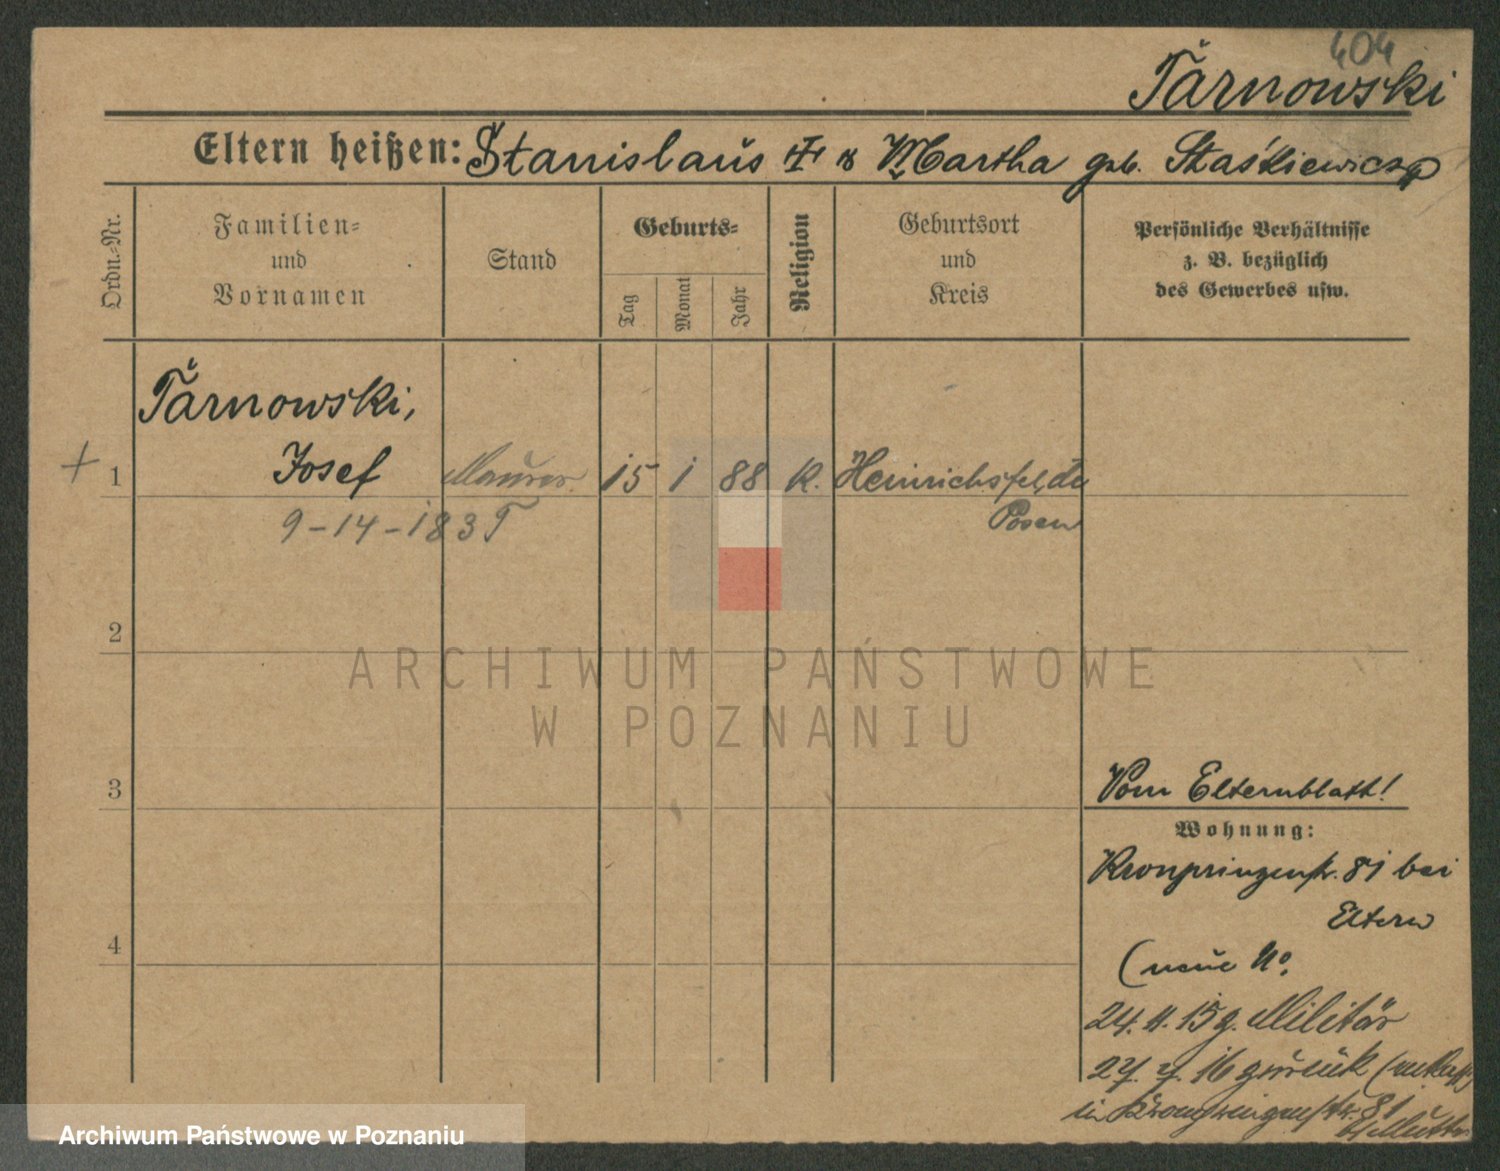 404
Tarnowski
Eltern heißen: Stanislaus & Martha geb. Staśkiewicz
Ordn.-Nr.
Familien-
und
Vornamen
Stand
Geburts-
Tag
Monat
Jahr
Religion
Geburtsort
und
Kreis
Persönliche Verhältnisse
z. B. bezüglich
des Gewerbes usw.
Tarnowski,
+ 1 Josef Maurer 15 1 88 K. Heinrichsfelde
Posen
9-14-1835
2
ARCHIWUM PAŃSTWOWE
W POZNANIU
3
Vom Elternblatt!
Wohnung:
Kronprinzenstr. 81 bei
Eltern
(neue No.
4
24. 4. 15 g. Militär
27. 7. 16 zurück
in Kronprinzenstr. 81
b/ Mutter
Archiwum Państwowe w Poznaniu